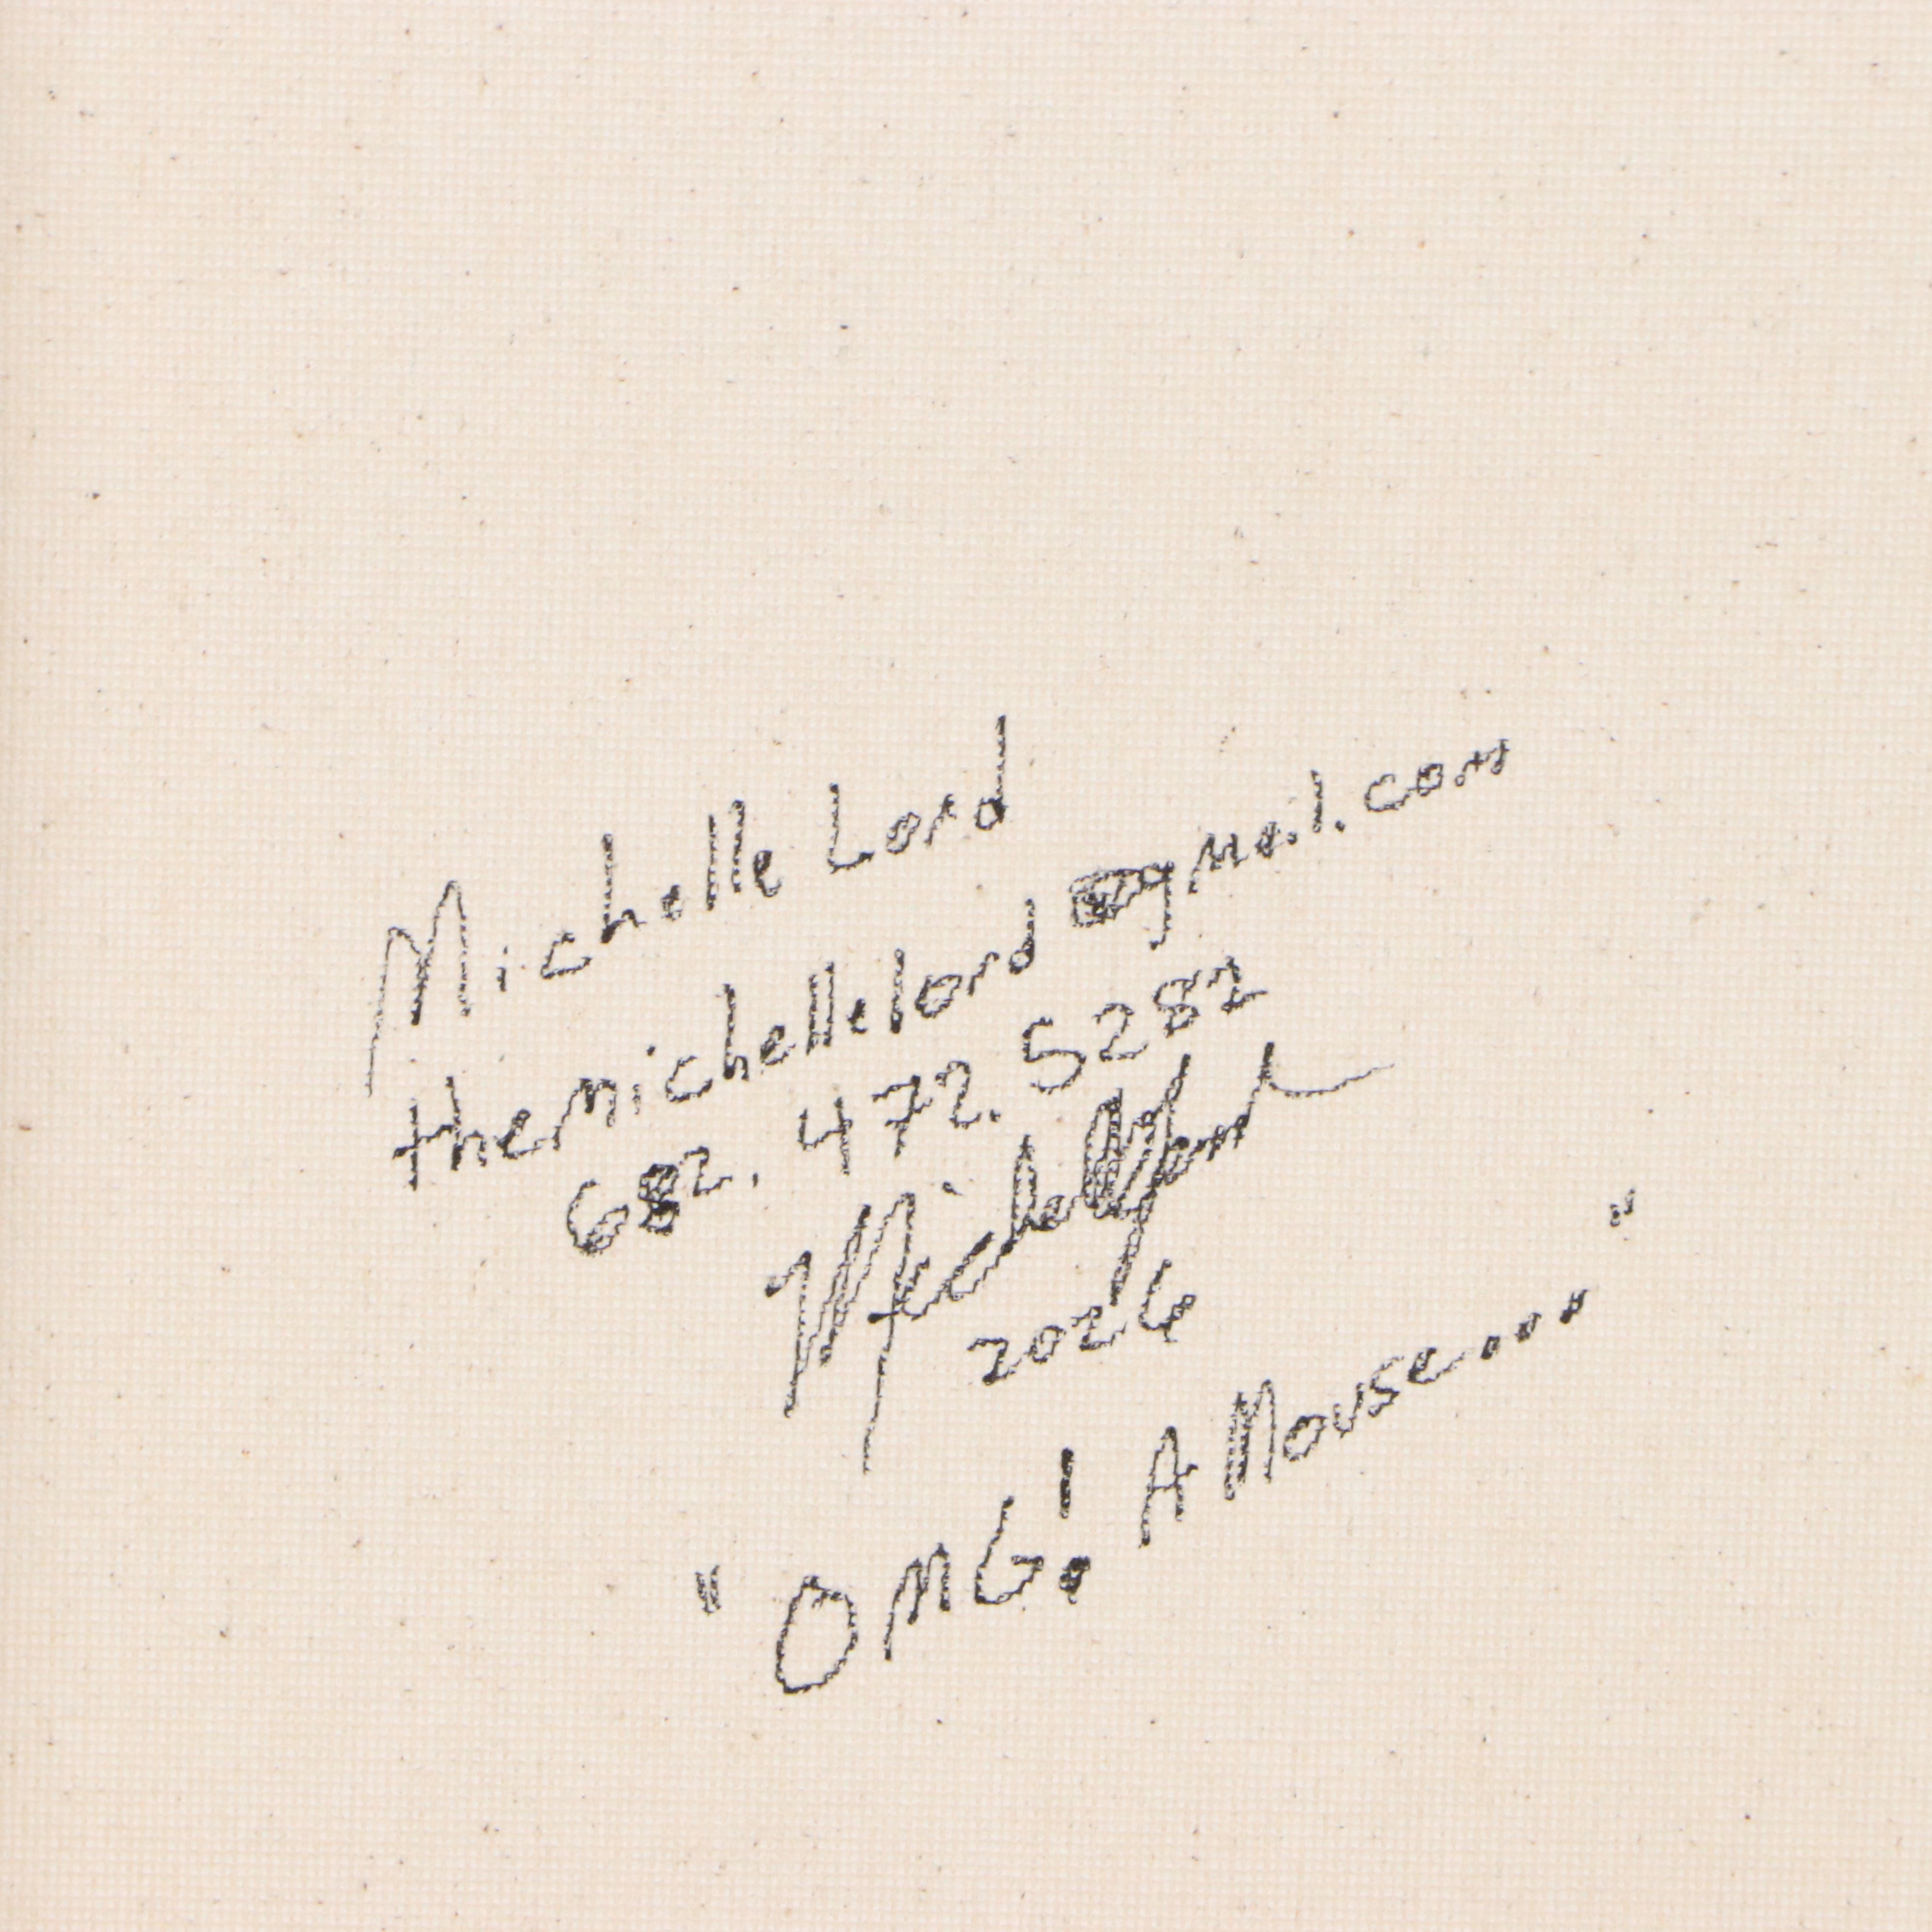 Michelle Lord
themichellelord@gmail.com
682.472.5287
Michelle Lord
2024
"OMG! A Mouse..."